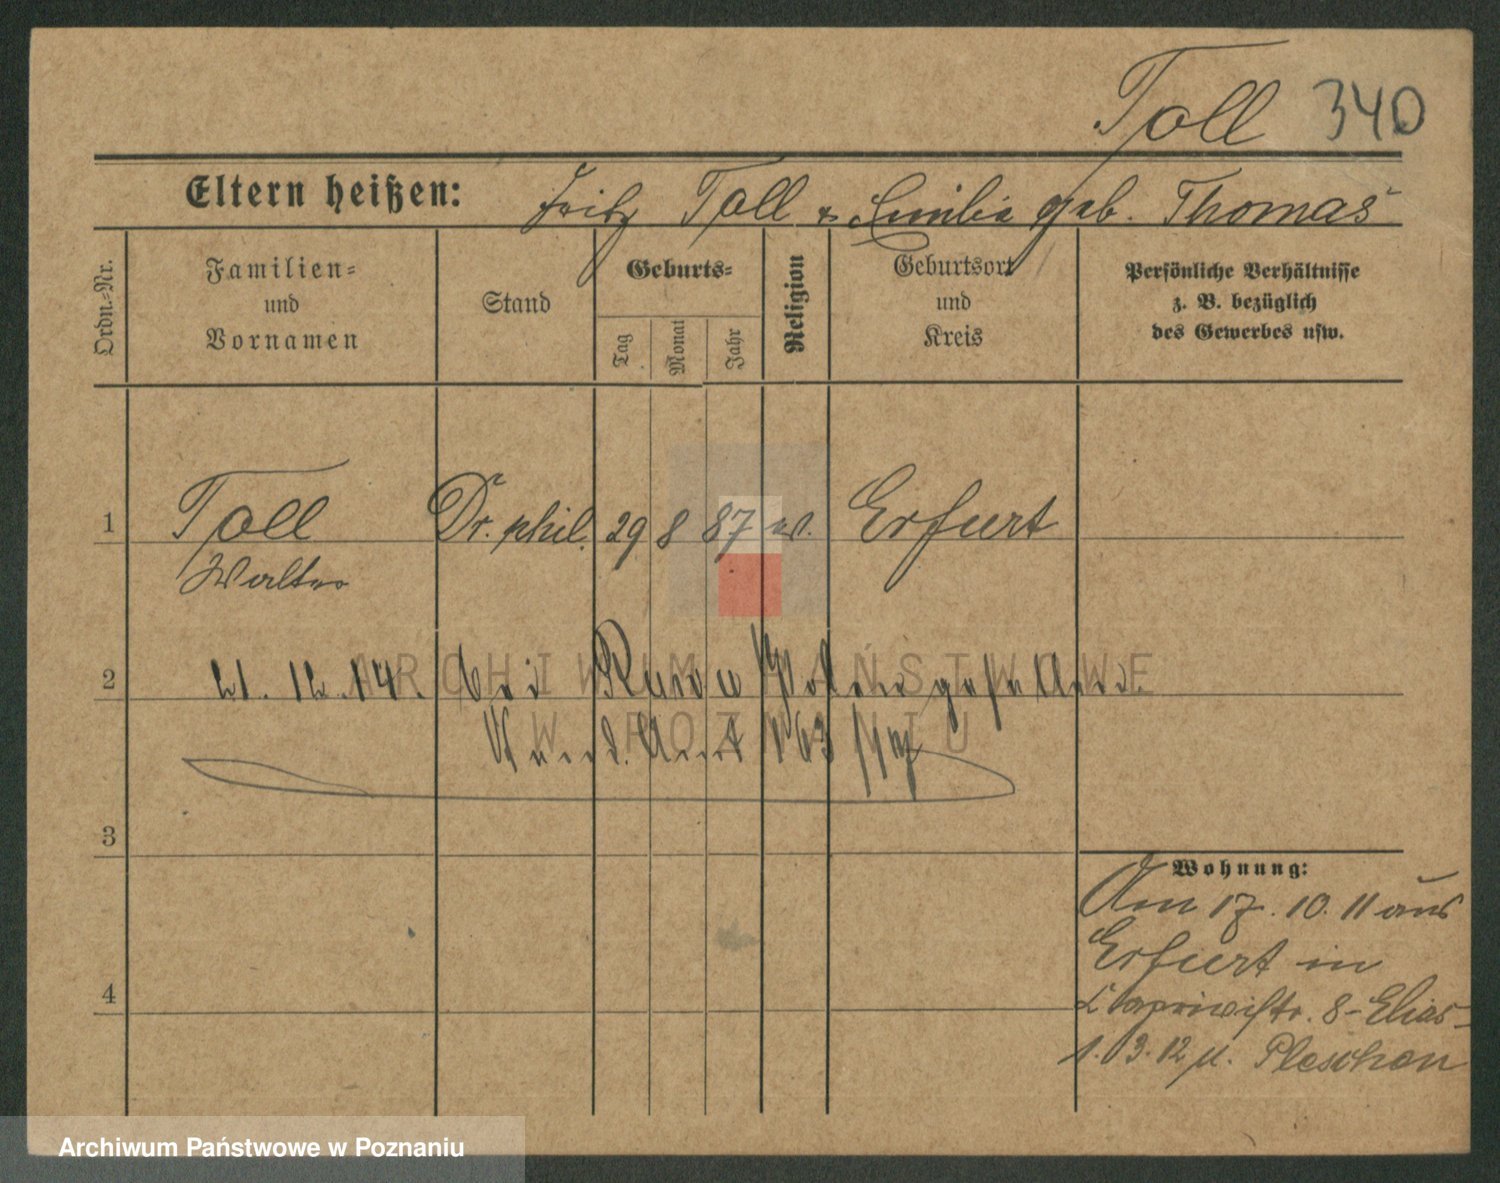 Toll 340
Eltern heißen: Fritz Toll & Emilie geb. Thomas
Ordn.-Nr.
Familien-
und
Vornamen
Stand
Geburts-
Tag
Monat
Jahr
Religion
Geburtsort
und
Kreis
Persönliche Verhältnisse
z. B. bezüglich
des Gewerbes usw.
1 Toll Dr. phil. 29 8 87 ev. Erfurt
Walter
2 21. 12. 14. bei Polen
ARCHIWUM PAŃSTWOWE
W POZNANIU
3
Wohnung:
Am 17. 10. 11 aus
Erfurt in
4
Caprivistr. 8 - Elias
1. 3. 12 n. Pleschen
Archiwum Państwowe w Poznaniu